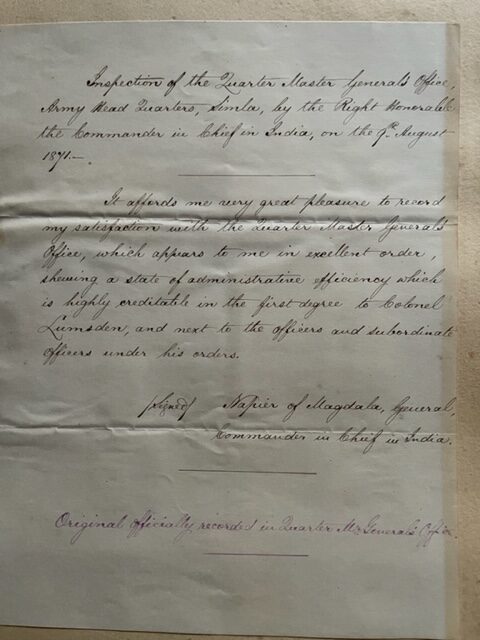 Inspection of the Quarter Master General's Office,
Army Head Quarters, Simla, by the Right Honorable
the Commander in Chief in India, on the 9th August
1871.—
It affords me very great pleasure to record
my satisfaction with the Quarter Master General's
Office, which appears to me in excellent order,
shewing a state of administrative efficiency which
is highly creditable in the first degree to Colonel
Lumsden, and next to the officers and subordinate
officers under his orders.
/Signed/ Napier of Magdala, General,
Commander in Chief in India.
Original officially recorded in Quarter Mr. General's Office.